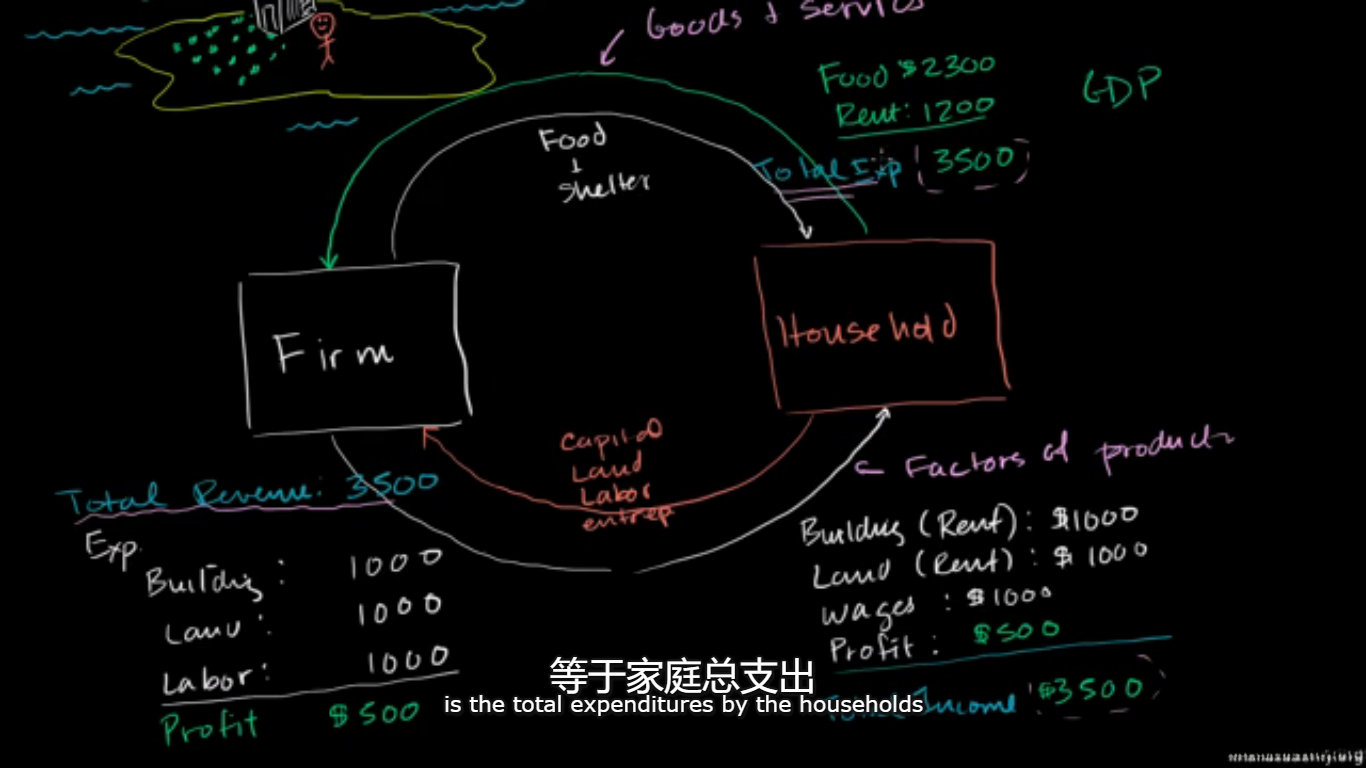 Goods & Servic
Food $2300
Rent: 1200
GDP
Total Exp 3500
Food
&
shelter
Firm
Household
Capital
Land
Labor
entrep
Factors of product
Total Revenue: 3500
Exp.
Building: 1000
Land: 1000
Labor: 1000
Profit $500
Building (Rent): $1000
Land (Rent): $1000
Wages: $1000
Profit: $500
Total Income $3500
等于家庭总支出
is the total expenditures by the households